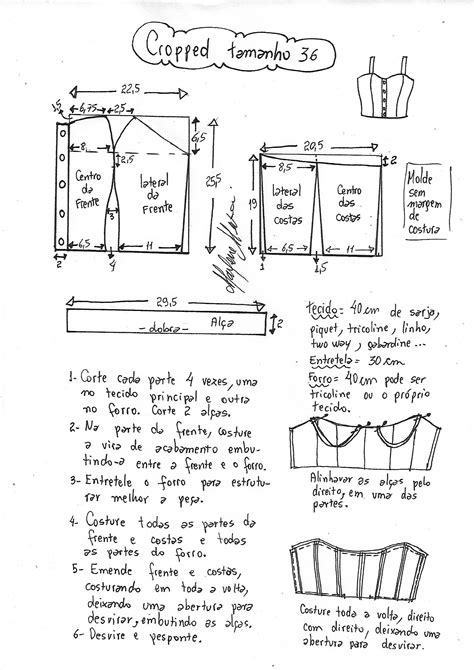 Cropped tamanho 36
22,5
1,5
6,75
2,5
6,5
8,
2,5
Centro da frente
lateral da frente
25,5
3
6,5
11
2
4
Marlene Mukai
20,5
8,5
2
19
lateral das costas
Centro das costas
6,5
11
1
1,5
Molde
sem
margem
de
costura
29,5
- dobra - Alça
2
tecido = 40 cm de sarja,
piquet, tricoline, linho,
two way, gabardine...
Entretela = 30 cm
Forro = 40 cm pode ser
tricoline ou o próprio
tecido.
1- Corte cada parte 4 vezes, uma
no tecido principal e outra
no forro. Corte 2 alças.
2- Na parte da frente, costure
a vira de acabamento embu-
tindo-a entre a frente e o forro.
3- Entretele o forro para estrutu-
rar melhor a peça.
4- Costure todas as partes da
frente e costas e todas
as partes do forro.
5- Emende frente e costas,
costurando em toda a volta,
deixando uma abertura para
desvirar, embutindo as alças.
6- Desvire e pesponte.
Alinhavar as alças pelo
direito, em uma das
partes.
Costure toda a volta, direito
com direito, deixando uma
abertura para desvirar.